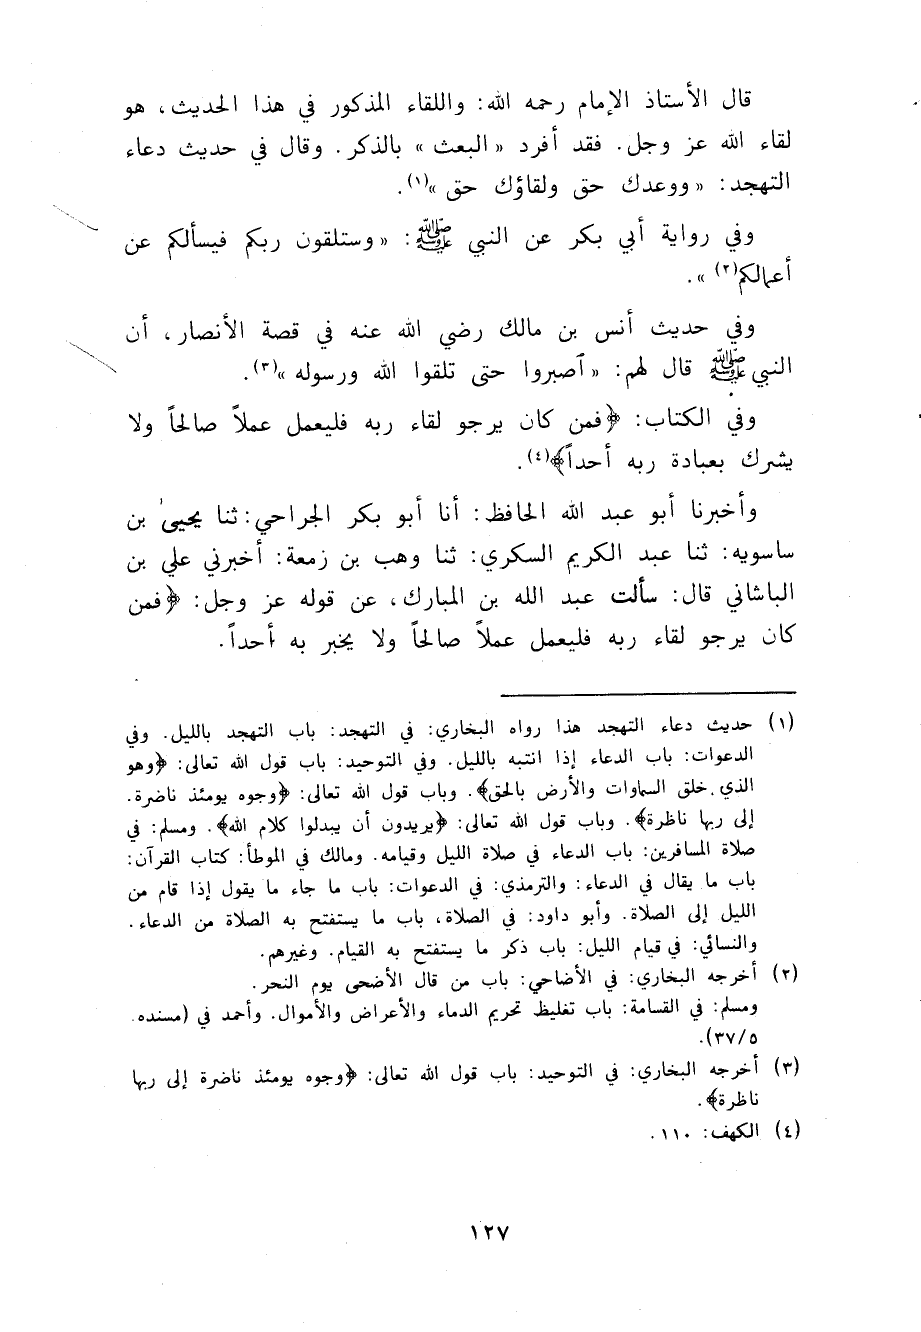 قال الأستاذ الإمام رحمه الله: واللقاء المذكور في هذا الحديث، هو
لقاء الله عز وجل. فقد أفرد «البعث» بالذكر. وقال في حديث دعاء
التهجد: «ووعدك حق ولقاؤك حق»(١).
وفي رواية أبي بكر عن النبي ﷺ: «وستلقون ربكم فيسألكم عن
أعمالكم(٢)».
وفي حديث أنس بن مالك رضي الله عنه في قصة الأنصار، أن
النبي ﷺ قال لهم: «آصبروا حتى تلقوا الله ورسوله»(٣).
وفي الكتاب: ﴿فمن كان يرجو لقاء ربه فليعمل عملاً صالحاً ولا
يشرك بعبادة ربه أحداً﴾(٤).
وأخبرنا أبو عبد الله الحافظ: أنا أبو بكر الجراحي: ثنا يحيىٰ بن
ساسويه: ثنا عبد الكريم السكري: ثنا وهب بن زمعة: أخبرني علي بن
الباشاني قال: سألت عبد الله بن المبارك، عن قوله عز وجل: ﴿فمن
كان يرجو لقاء ربه فليعمل عملاً صالحاً ولا يخبر به أحداً.
(١) حديث دعاء التهجد هذا رواه البخاري: في التهجد: باب التهجد بالليل. وفي
الدعوات: باب الدعاء إذا انتبه بالليل. وفي التوحيد: باب قول الله تعالى: ﴿وهو
الذي خلق السماوات والأرض بالحق﴾. وباب قول الله تعالى: ﴿وجوه يومئذ ناضرة.
إلى ربها ناظرة﴾. وباب قول الله تعالى: ﴿يريدون أن يبدلوا كلام الله﴾. ومسلم: في
صلاة المسافرين: باب الدعاء في صلاة الليل وقيامه. ومالك في الموطأ: كتاب القرآن:
باب ما يقال في الدعاء: والترمذي: في الدعوات: باب ما جاء ما يقول إذا قام من
الليل إلى الصلاة. وأبو داود: في الصلاة، باب ما يستفتح به الصلاة من الدعاء.
والنسائي: في قيام الليل: باب ذكر ما يستفتح به القيام. وغيرهم.
(٢) أخرجه البخاري: في الأضاحي: باب من قال الأضحى يوم النحر.
ومسلم: في القسامة: باب تغليظ تحريم الدماء والأعراض والأموال. وأحمد في (مسنده
٣٧/٥).
(٣) أخرجه البخاري: في التوحيد: باب قول الله تعالى: ﴿وجوه يومئذ ناضرة إلى ربها
ناظرة﴾.
(٤) الكهف: ١١٠.
١٢٧